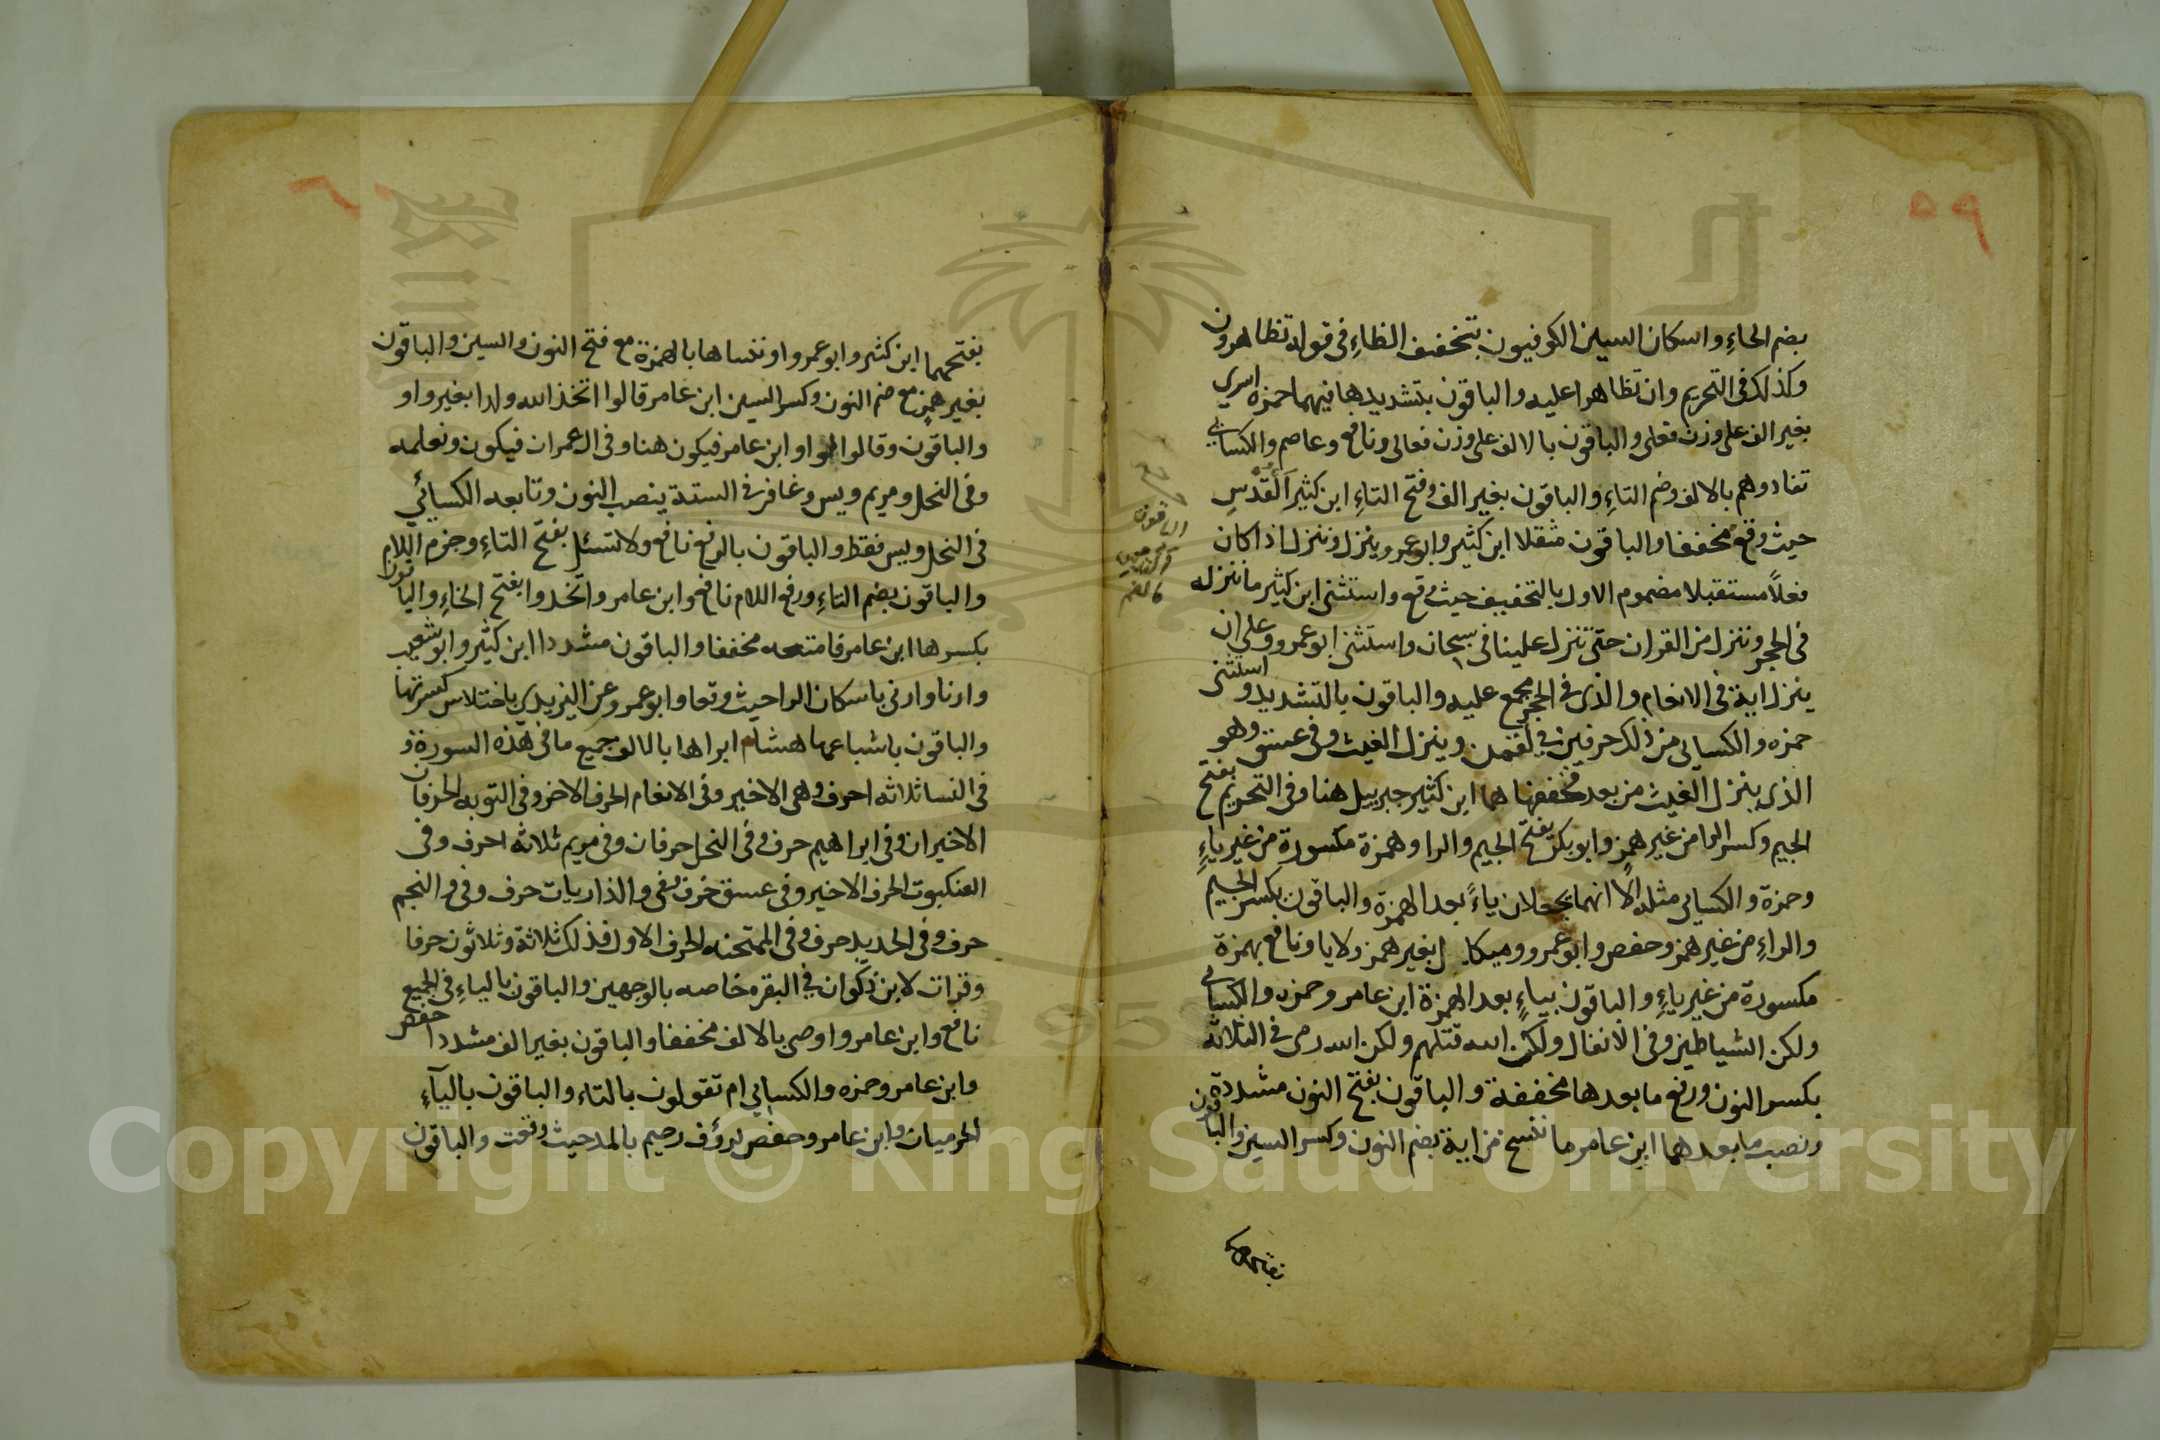 ٥٩
بضم الحاءِ واسكان السين الكوفيون بتخفيف الظاءِ فى قوله تظاهرون
وكذلك فى التحريم وان تظاهرا عليه والباقون بتشديدها فيهما حمزه اسرى
بغير الف على وزن فعلى والباقون بالالف على وزن فعالى ونافع وعاصم والكسائى
تفادوهم بالالف وضم التاءِ والباقون بغير الف وفتح التاءِ ابن كثير اَلْقُدْسِ
حيث وقع مخففا والباقون مثقلا ابن كثير وابو عمرو ينزل وننزل اذا كان
فعلاً مستقبلا مضموم الاول بالتخفيف حيث وقع واستثنى ابن كثير ما ننزله
فى الحجر وننزل من القران حتى تنزل علينا فى سبحان واستثنى ابو عمرو وعلى ان
ينزل اية فى الانعام والذى فى الحجر مجمع عليه والباقون بالتشديد واستثنى
حمزه والكسائى من ذلك حرفين فى لقمن وينزل الغيث وفى عسق وهو
الذى ينزل الغيث من بعد فخففهاهما ابن كثير جبريل هنا وفى التحريم بفتح
الجيم وكسر الرا من غير همز وابو بكر بفتح الجيم والرا وهمزة مكسورة من غير ياءٍ
وحمزة والكسائى مثله الا انهما يجعلان ياءً بعد الهمزة والباقون بكسر الجيم
والراءِ من غير همز وحفص وابو عمرو وميكال بغير همز ولا يا ونافع بهمزة
مكسورة من غير ياءٍ والباقون بياءٍ بعد الهمزة ابن عامر وحمزه والكسائى
ولكن الشياطين وفى الانفال ولكن الله قتلهم ولكن الله رمى فى الثلاثة
بكسر النون ورفع ما بعدها مخففة والباقون بفتح النون مشددة
ونصب ما بعدهما ابن عامر ما ننسخ من اية بضم النون وكسر السين والباقون
الباقون
بفتحهما
٦٠
بفتحهما ابن كثير وابو عمرو او ننساها بالهمزة مع فتح النون والسين والباقون
بغير همز مع ضم النون وكسر السين ابن عامر قالوا اتخذ الله ولدا بغير واو
والباقون وقالوا بالواو ابن عامر فيكون هنا وفى ال عمران فيكون ونعلمه
وفى النحل ومريم ويس وغافر فى الستة ينصب النون وتابعه الكسائي
فى النحل ويس فقط والباقون بالرفع نافع ولا تسئل بفتح التاءِ وجزم اللام
والباقون بضم التاءِ ورفع اللام نافع وابن عامر واتخدوا بفتح الخاءِ والباقون
بكسرها ابن عامر فامتعه مخففا والباقون مشددا ابن كثير وابو شعيب
وارنا وارنى باسكان الرا حيث وقعا وابو عمرو عن اليزيدي باختلاس كسرتها
والباقون باشباعها هشام ابراها بالالف جميع ما فى هذه السورة و
فى النسا ثلاثه احرف وهى الاخير وفى الانعام الحرف الاخر وفى التوبه الحرفان
الاخيران وفى ابراهيم حرف وفى النحل حرفان وفى مريم ثلاثه احرف وفى
العنكبوت الحرف الاخير وفى عسق حرف وفى والذاريات حرف وفى والنجم
حرف وفى الحديد حرف وفى الممتحنه الحرف الاول فذلك ثلاثة وثلاثون حرفا
وقرات لابن ذكوان فى البقره خاصه بالوجهين والباقون بالياءِ فى الجميع
نافع وابن عامر واوصى بالالف مخففا والباقون بغير الف مشددا حفص
وابن عامر وحمزه والكسائى ام تقولون بالتاء والباقون باليآءِ
الحرميان وابن عامر وحفص لرؤف رحيم بالمد حيث وقعت والباقون
Copyright © King Saud University
1957